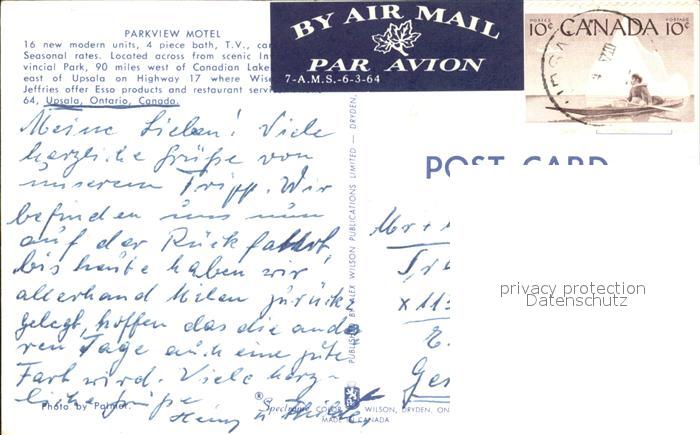 PARKVIEW MOTEL
16 new modern units, 4 piece bath, T.V., car
Seasonal rates. Located across from scenic In
vincial Park, 90 miles west of Canadian Lake
east of Upsala on Highway 17 where Wise
Jeffries offer Esso products and restaurant serv
64, Upsala, Ontario, Canada.
BY AIR MAIL
PAR AVION
7-A.M.S.-6-3-64
POSTES POSTAGE
10¢ CANADA 10¢
Meine Lieben! Viele
herzliche Grüße von
unserem Tripp. Wir
befinden uns nun
auf der Rückfahrt,
bis heute haben wir
allerhand Milen zurück
gelegt, hoffen das die ande
ren Tage auch eine gute
Fart wird. Viele herz-
liche Grüße
Heinz u.
Photo by Palmer.
PUBLISHED BY ALEX WILSON PUBLICATIONS LIMITED — DRYDEN,
POST CARD
Mr +
x 113
Ger
privacy protection
Datenschutz
® Spectrome COLOR WILSON, DRYDEN, ON
MADE IN CANADA